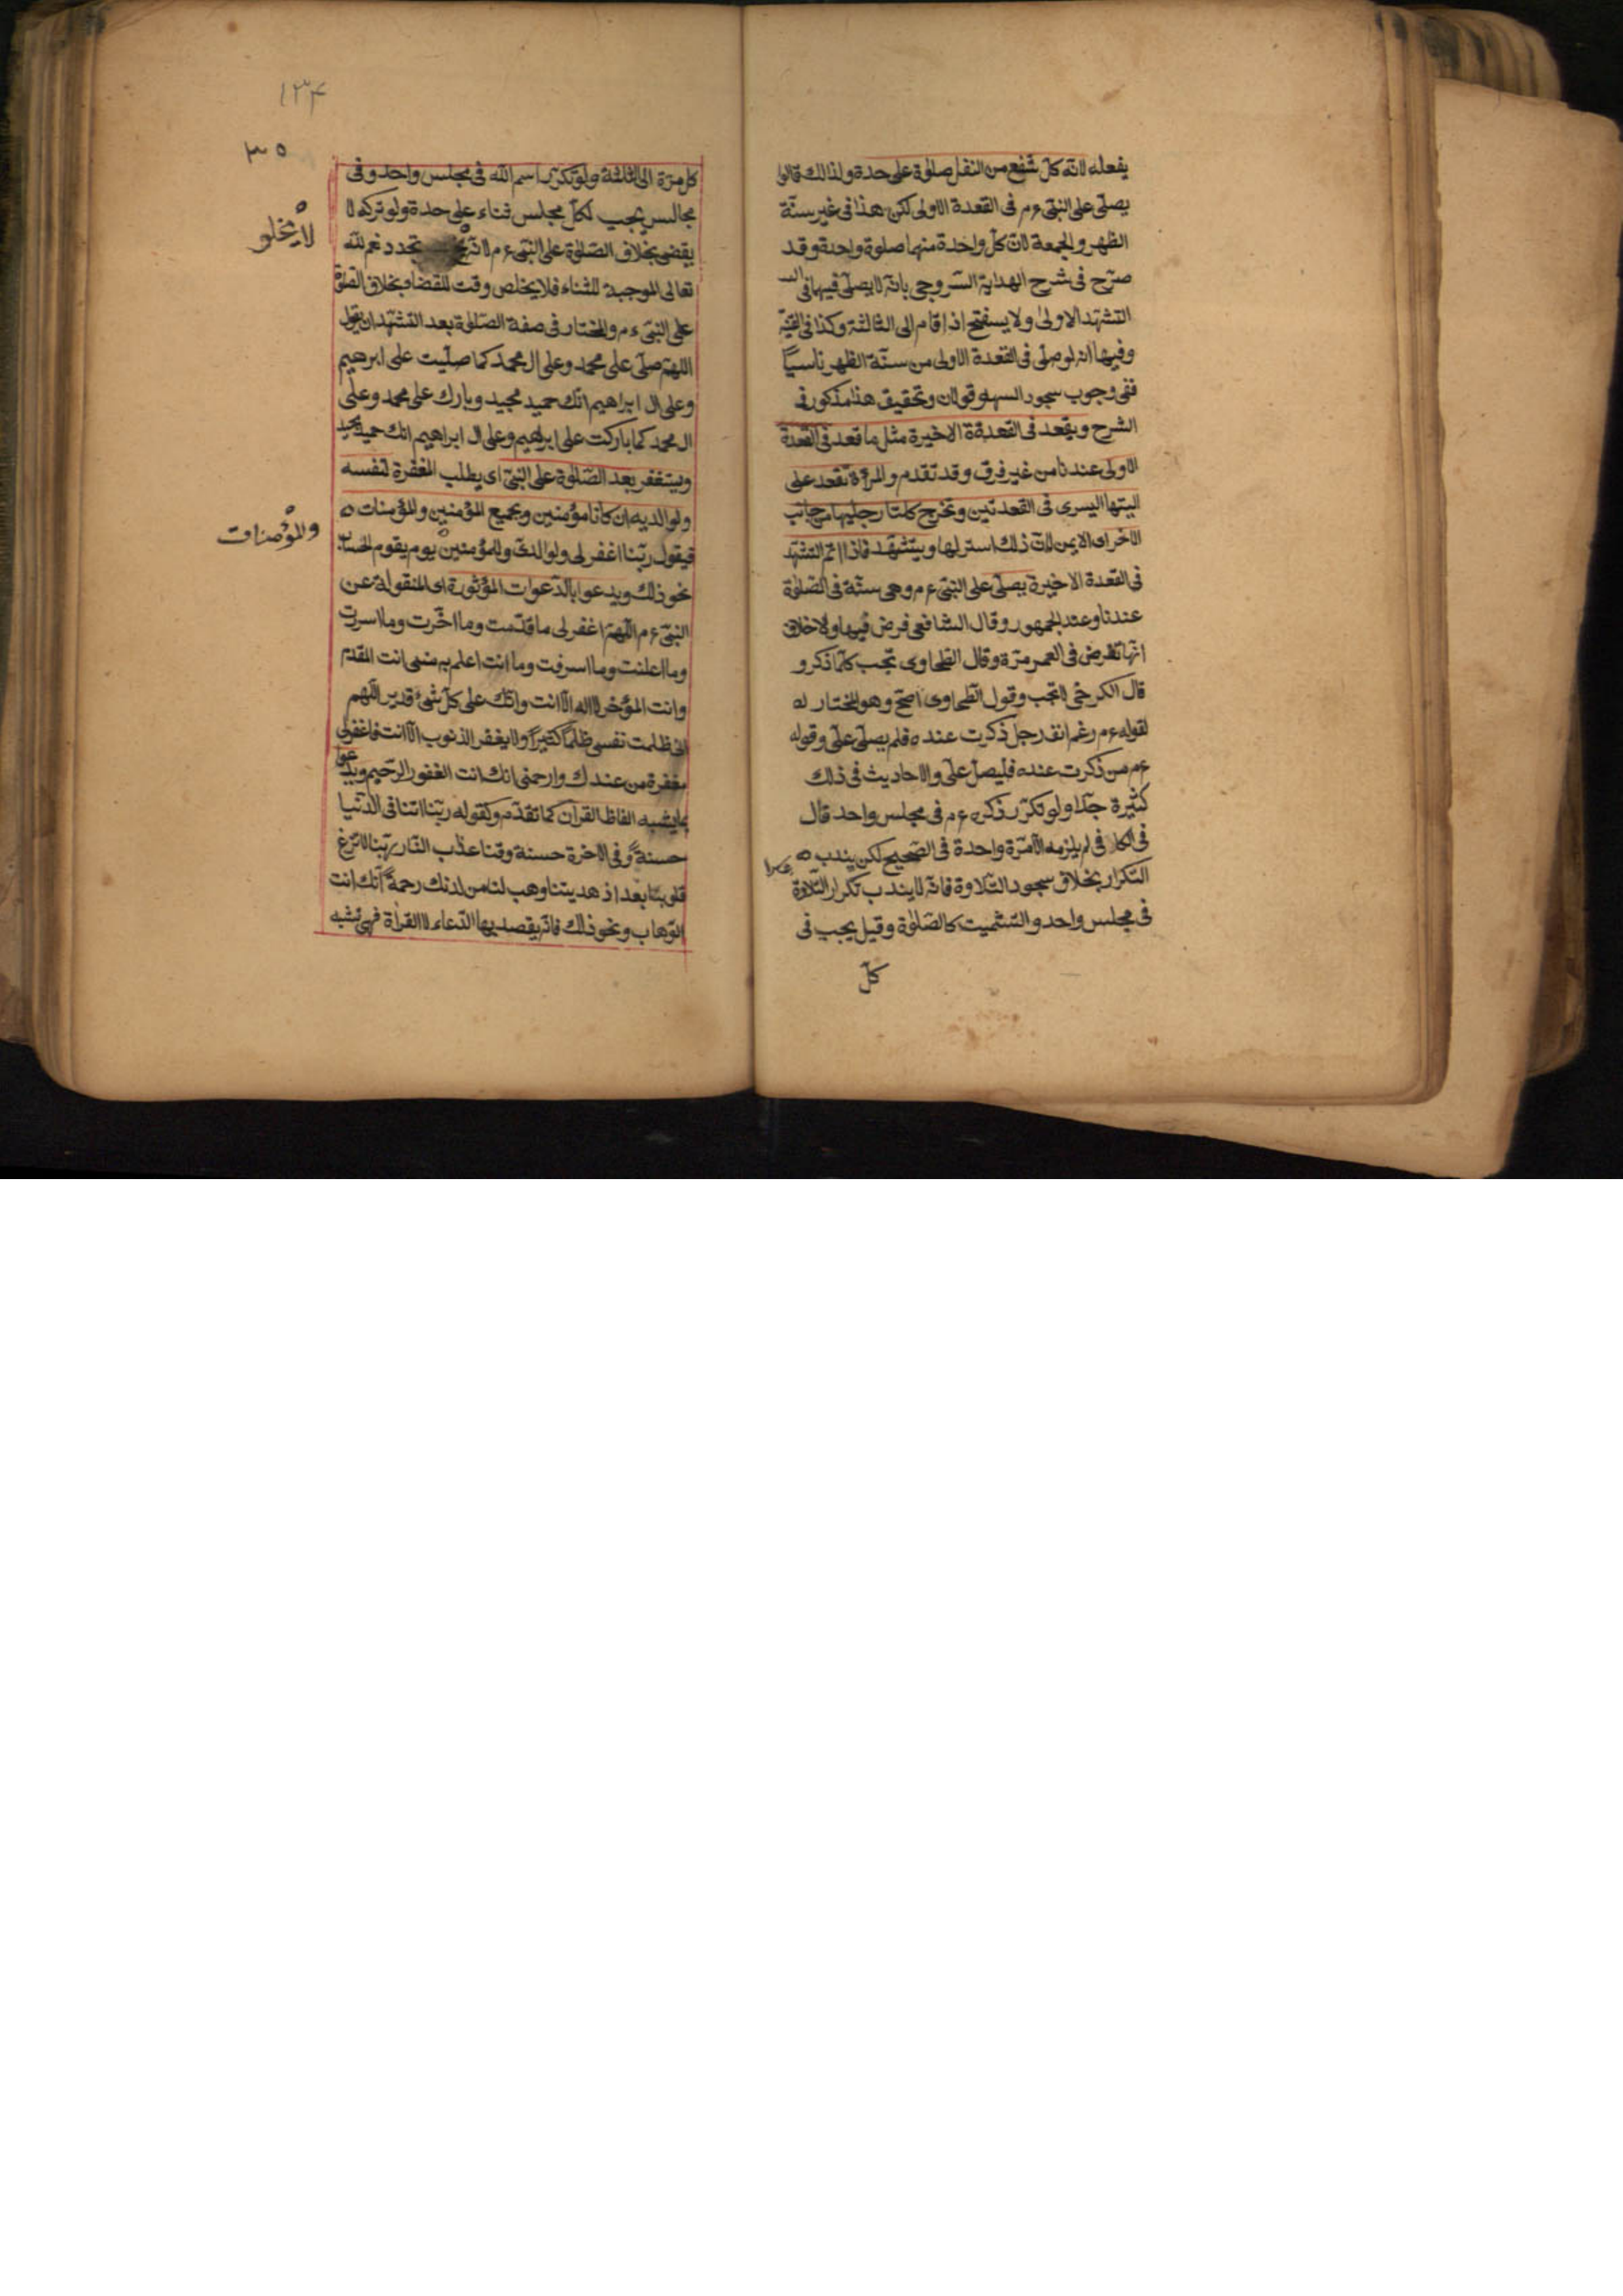 يفعله لانه كل شفع من النفل صلوة على حدة ولذالك قالوا
يصلى على النبى ع م فى القعدة الاولى لكن هذا فى غير سنة
الظهر والجمعة لان كل واحدة منها صلوة واحدة وقد
صرح فى شرح الهداية السروجى بانه لا يصلى فيها فى
التشهد الاولى ولا يستفتح اذا قام الى الثالثة وكذا فى القنية
وفيها انه لو صلى فى القعدة الاولى من سنة الظهر ناسيا
ففى وجوب سجود السهو قولان وتحقيق هذا مذكور فى
الشرح ويقعد فى القعدة الاخيرة مثل ما قعد فى القعدة
الاولى عندنا من غير فرق وقد تقدم والمرأة تقعد على
اليتها اليسرى فى القعدتين وتخرج كلتا رجليها من جانب
الاخر اى الايمن لان ذلك استر لها ويتشهد فاذا اتم التشهد
فى القعدة الاخيرة يصلى على النبى ع م وهى سنة فى الصلوة
عندنا وعند الجمهور وقال الشافعى فرض فيها ولا خلاف
انها تفرض فى العمر مرة وقال الطحاوى تجب كلما ذكر و
قال الكرخى لا تجب وقول الطحاوى اصح وهو المختار له
لقوله ع م رغم انف رجل ذكرت عنده فلم يصلى على وقوله
ع م من ذكرت عنده فليصل على والاحاديث فى ذلك
كثيرة جدا ولو تكرر ذكره ع م فى مجلس واحد قال
فى الكافى لم يلزمه الا مرة واحدة فى الصحيح لكن يندب
التكرار بخلاف سجود التلاوة فانه لا يندب تكرار التلاوة
فى مجلس واحد والتشميت كالصلوة وقيل يجب فى
كل
١٣۴
كل مرة الى الثالثة ولو تكرر اسم الله فى مجلس واحد وفى
مجالس يجب لكل مجلس ثناء على حدة ولو تركه لا
يقضى بخلاف الصلوة على النبى ع م لانه تجدد نعم الله
لا يخلو
تعالى الموجبة للثناء فلا يخلص وقت للقضاء بخلاف الصلوة
على النبى ع م والمختار فى صفة الصلوة بعد التشهد ان يقول
اللهم صلى على محمد وعلى ال محمد كما صليت على ابرهيم
وعلى ال ابراهيم انك حميد مجيد وبارك على محمد وعلى
ال محمد كما باركت على ابرهيم وعلى ال ابراهيم انك حميد مجيد
ويستغفر بعد الصلوة على النبى اى يطلب المغفرة لنفسه
ولوالديه ان كانا مؤمنين وبجميع المؤمنين والمؤمنات
فيقول ربنا اغفر لى ولوالدى وللمؤمنين يوم يقوم الحساب
والمؤمنات
نحو ذلك ويدعوا بالدعوات المؤثورة اى المنقولة عن
النبى ع م اللهم اغفر لى ما قدمت وما اخرت وما اسررت
وما اعلنت وما اسرفت وما انت اعلم به منى انت المقدم
وانت المؤخر لا اله الا انت وانك على كل شئ قدير اللهم
انى ظلمت نفسى ظلما كثيرا ولا يغفر الذنوب الا انت فاغفر لى
مغفرة من عندك وارحمنى انك انت الغفور الرحيم ويدعوا
بما يشبه الفاظ القرآن كما تقدم وكقوله ربنا اتنا فى الدنيا
حسنة وفى الاخرة حسنة وقنا عذاب النار ربنا لا تزغ
قلوبنا بعد اذ هديتنا وهب لنا من لدنك رحمة انك انت
الوهاب ونحو ذلك فانه يقصد بها الدعاء لا القراة فهى تشبه